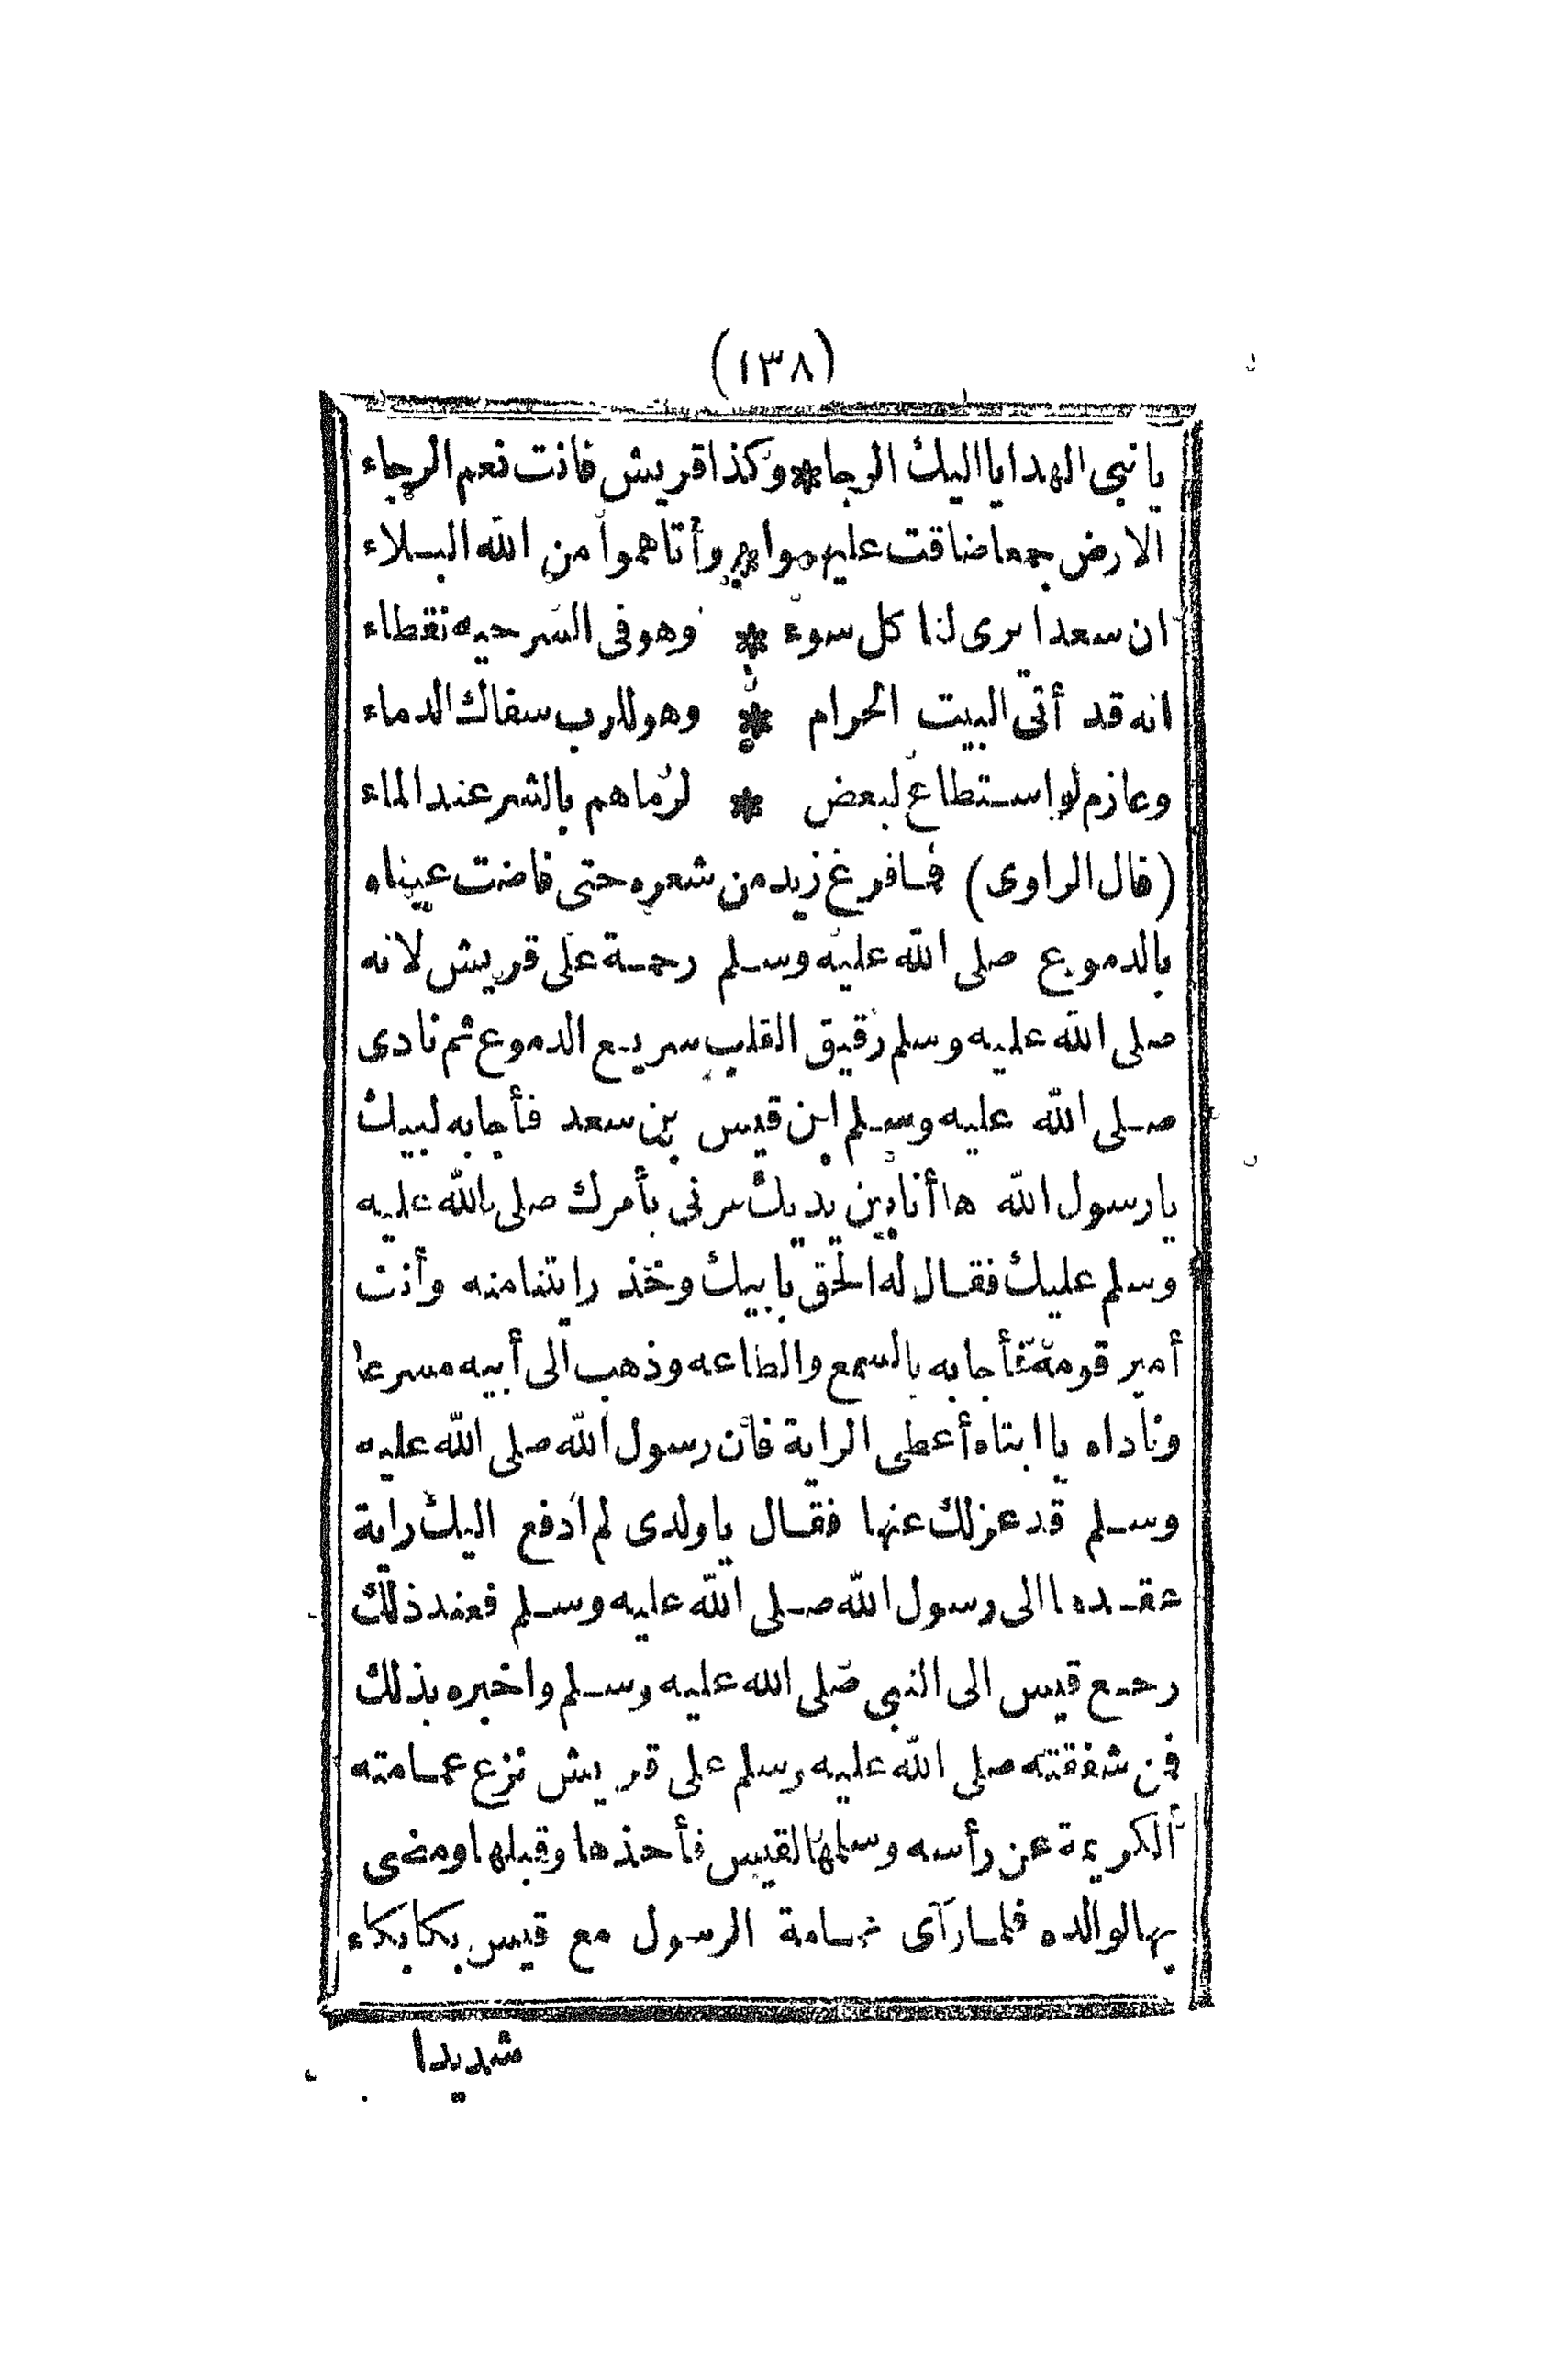 (١٣٨)
يا نبى الهدايا اليك الرجا * وكذا قريش فانت نعم الرجاء
الارض جمعا ضاقت عليهموا * وأتاهموا من الله البلاء
ان سعدا يرى لنا كل سوء * وهو فى السر حيه نقطاء
انه قد أتى البيت الحرام * وهو للرب سفاك الدماء
وعازم لو استطاع لبعض * لرماهم بالشر عند الماء
(قال الراوى) فما فرغ زيد من شعره حتى فاضت عيناه
بالدموع صلى الله عليه وسلم رحمة على قريش لانه
صلى الله عليه وسلم رقيق القلب سريع الدموع ثم نادى
صلى الله عليه وسلم ابن قيس بن سعد فأجابه لبيك
يا رسول الله ها أنا بين يديك مرنى بأمرك صلى الله عليه
وسلم عليك فقال له الحق بابيك وخذ رايتنا منه وأنت
أمير قومه فأجابه بالسمع والطاعه وذهب الى أبيه مسرعا
وناداه يا ابتاه أعطى الراية فأن رسول الله صلى الله عليه
وسلم قد عزلك عنها فقال يا ولدى لم أدفع اليك راية
عقدها الى رسول الله صلى الله عليه وسلم فعند ذلك
رجع قيس الى النبى صلى الله عليه وسلم واخبره بذلك
فمن شفقته صلى الله عليه وسلم على قريش نزع عمامته
الكريمة عن رأسه وسلمها لقيس فأخذها وقبلها ومضى
بها لوالده فلما رآى عمامة الرسول مع قيس بكا بكاء
شديدا